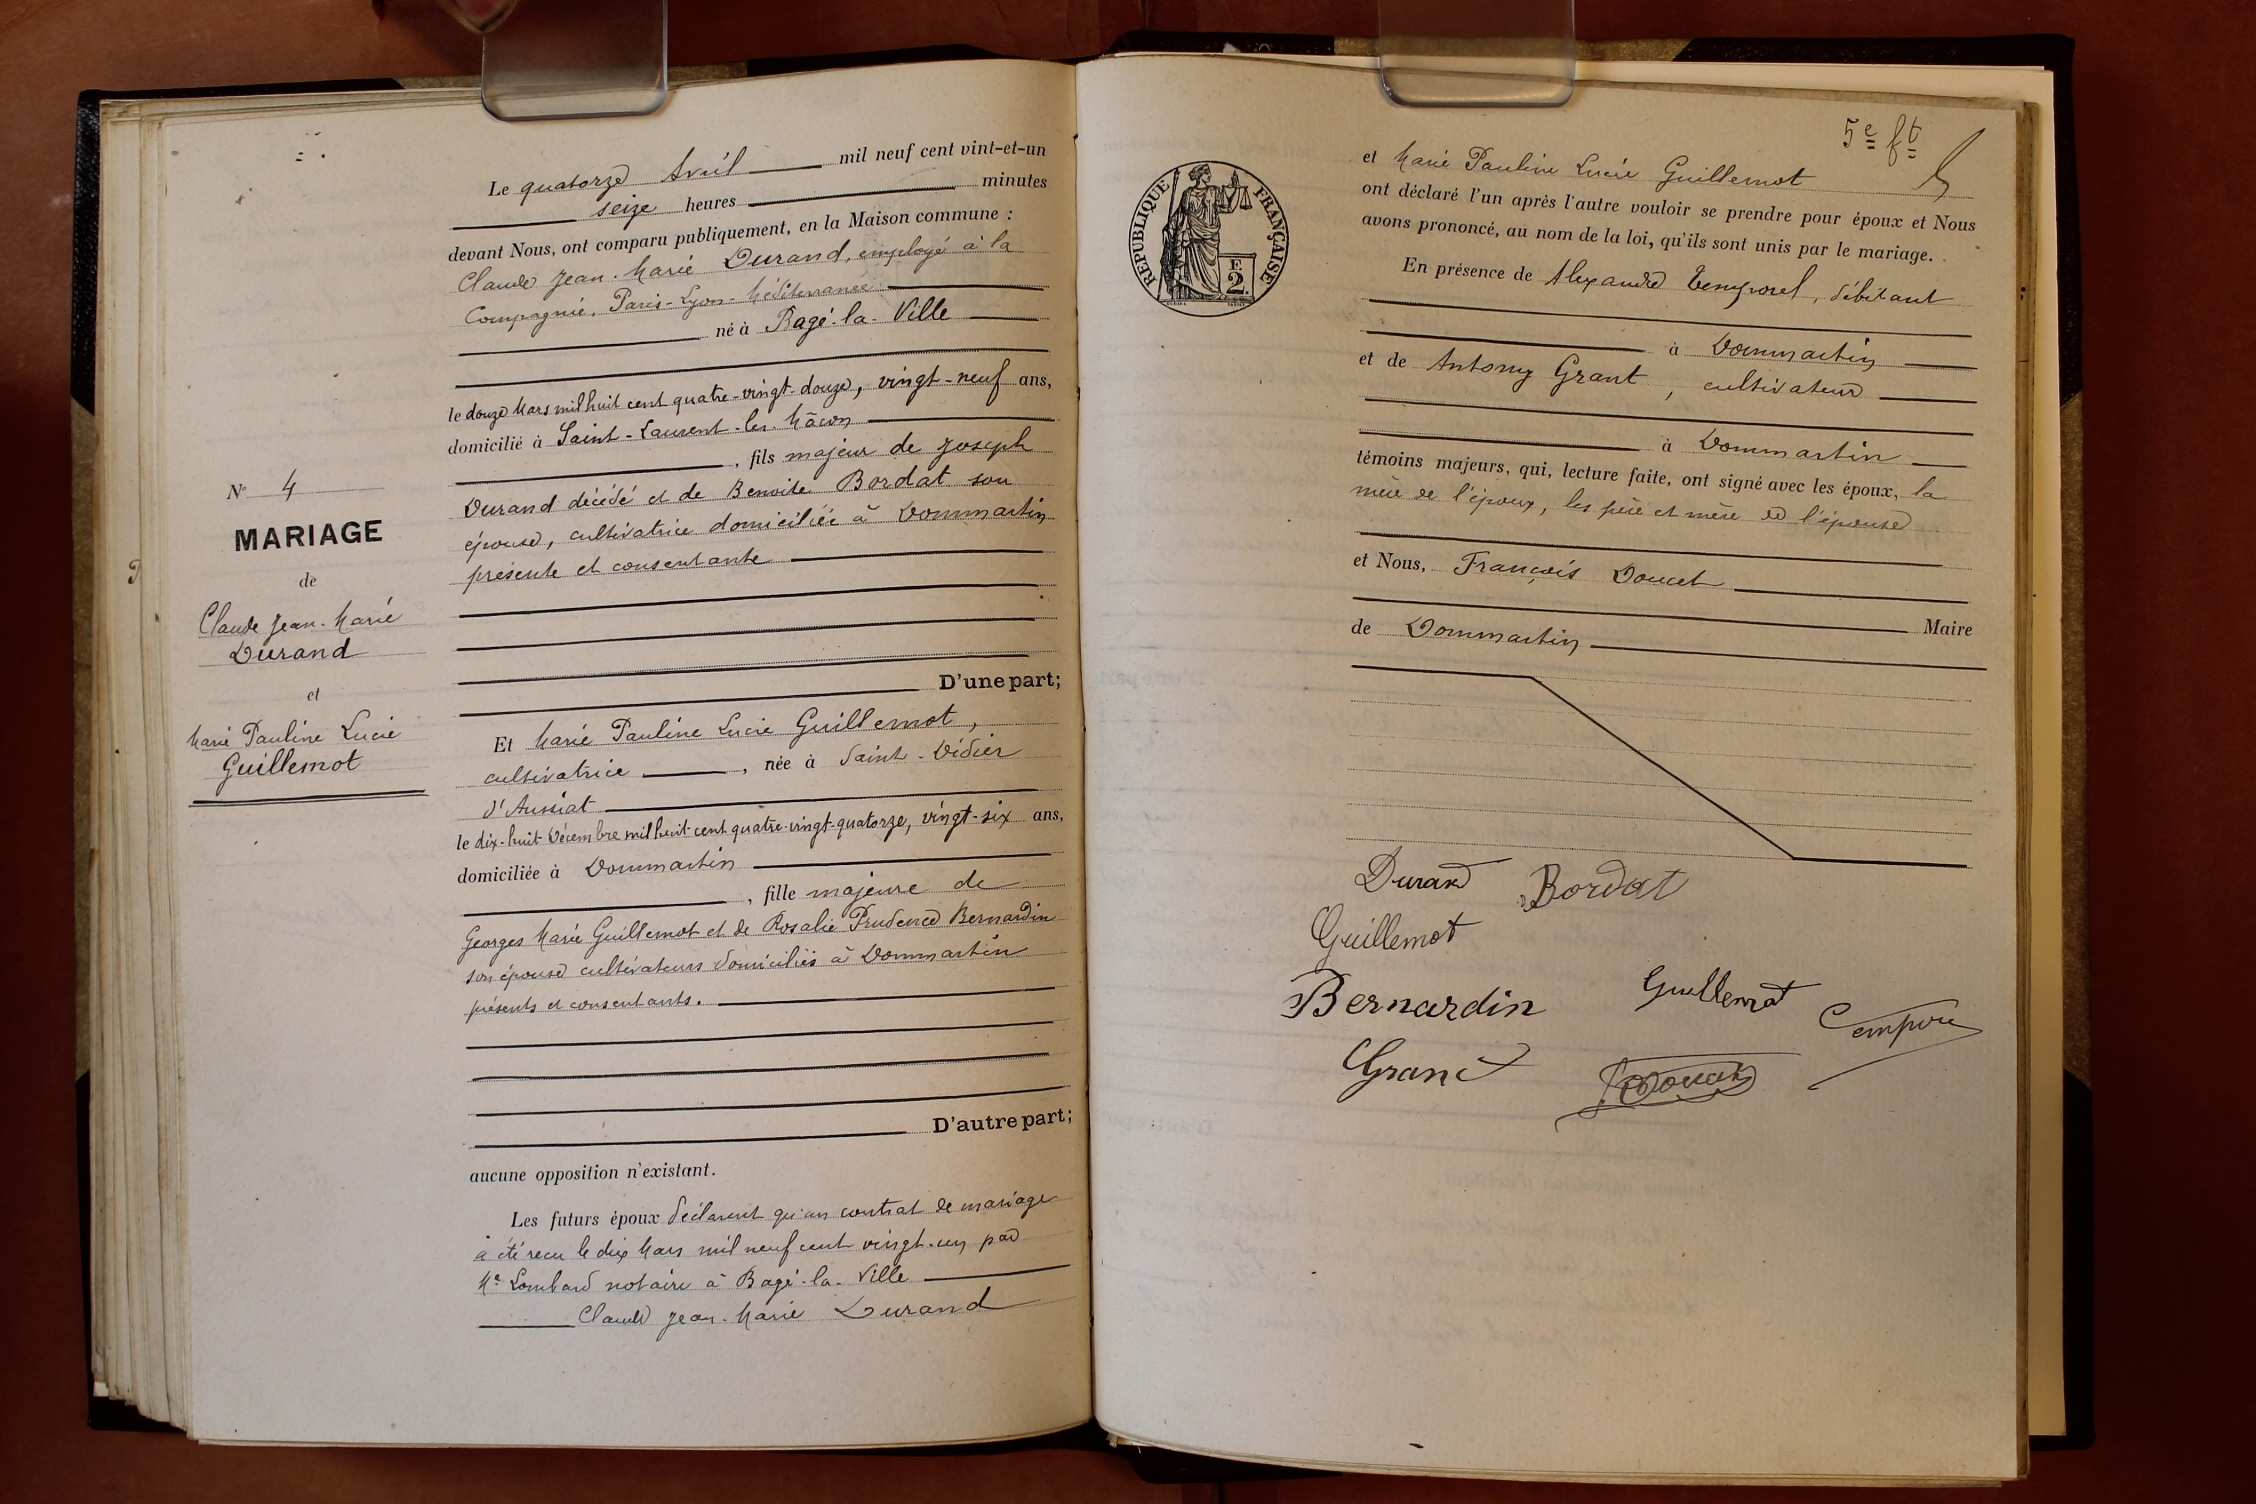 Le quatorze Avril mil neuf cent vint-et-un
seize heures minutes
devant Nous, ont comparu publiquement, en la Maison commune :
Claude Jean-Marie Durand, employé à la
Compagnie, Paris-Lyon-Méditerranée
né à Bagé-la-Ville
le douze Mars mil huit cent quatre-vingt-douze, vingt-neuf ans,
domicilié à Saint-Laurent-les-Mâcon
, fils majeur de Joseph
Durand décédé et de Benoite Bordat son
épouse, cultivatrice domiciliée à Dommartin
présente et consentante
D'une part;
Et Marie Pauline Lucie Guillemot,
cultivatrice , née à Saint-Didier
d'Aussiat
le dix-huit Décembre mil huit cent quatre-vingt-quatorze, vingt-six ans,
domiciliée à Dommartin
, fille majeure de
Georges Marie Guillemot et de Rosalie Prudence Bernardin
son épouse cultivateurs domiciliés à Dommartin
présents et consentants.
D'autre part;
aucune opposition n'existant.
Les futurs époux déclarent qu'un contrat de mariage
a été recu le dix Mars mil neuf cent vingt-un par
Me Lombard notaire à Bagé-la-Ville
Claude Jean-Marie Durand
N° 4
MARIAGE
de
Claude Jean-Marie
Durand
et
Marie Pauline Lucie
Guillemot
5e ft
RÉPUBLIQUE FRANÇAISE
F.
2.
et Marie Pauline Lucie Guillemot
ont déclaré l'un après l'autre vouloir se prendre pour époux et Nous
avons prononcé, au nom de la loi, qu'ils sont unis par le mariage.
En présence de Alexandre Temporel, débitant
à Dommartin
et de Antony Grant, cultivateur
à Dommartin
témoins majeurs, qui, lecture faite, ont signé avec les époux, la
mère de l'époux, les père et mère de l'épouse
et Nous, François Doucet
Maire
de Dommartin
Durand Bordat
Guillemot
Bernardin Guillemot
Grant